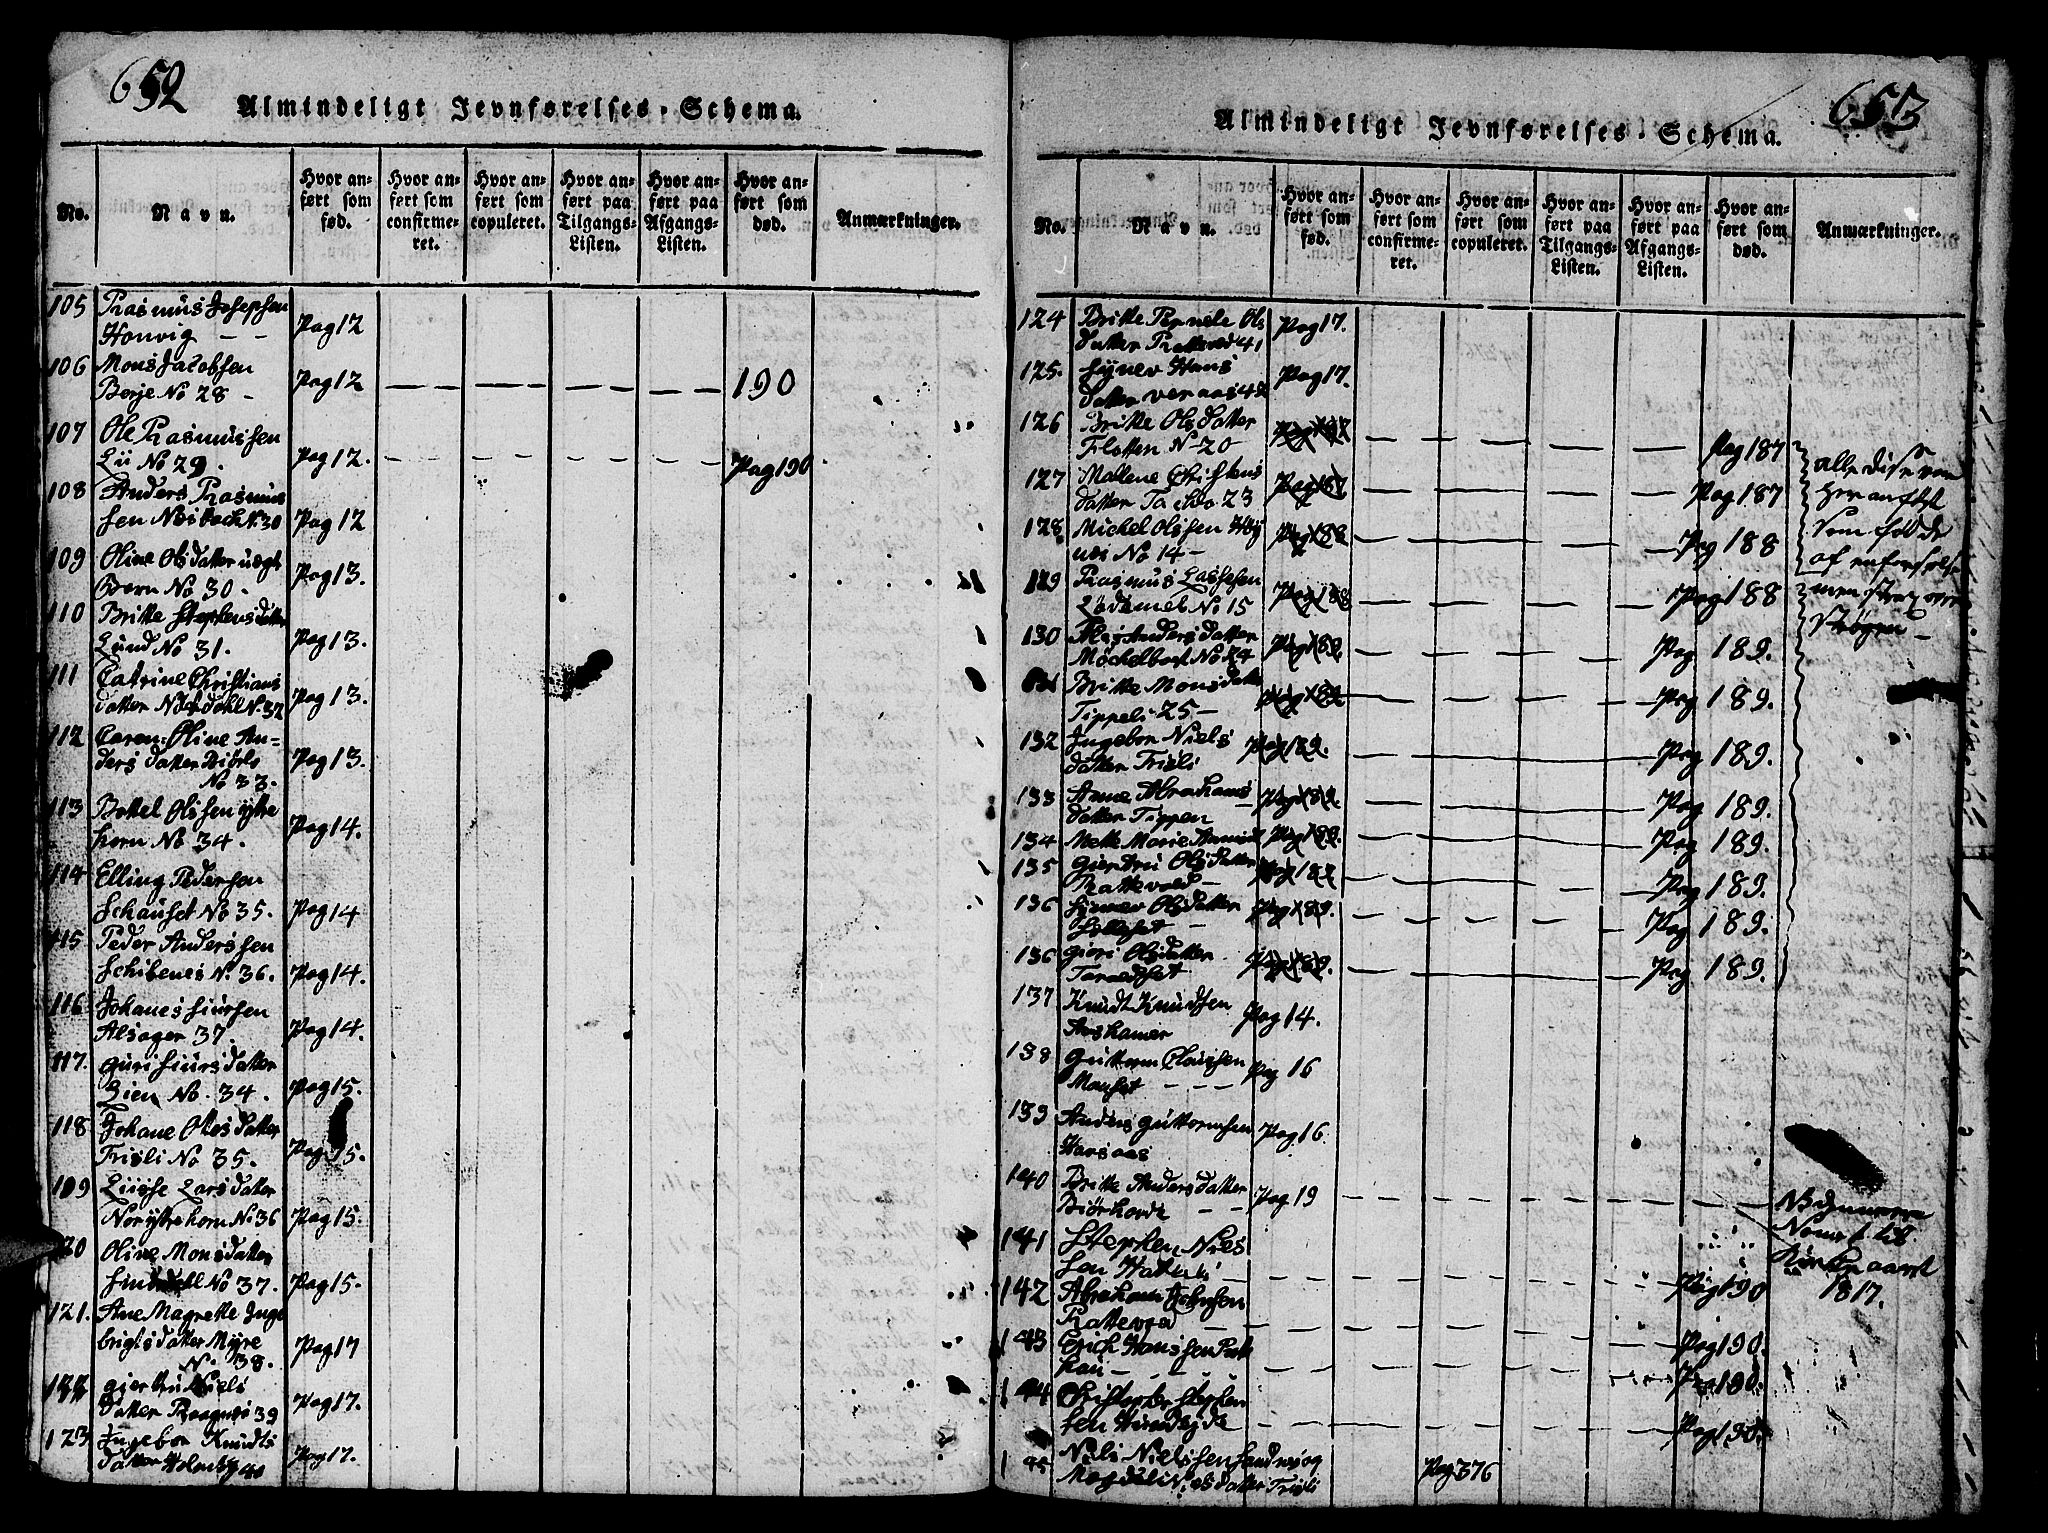 652
Almindeligt Jevnførelses-Schema.
No.
Navn.
Hvor an-
ført som
fød.
Hvor an-
ført som
confirme-
ret.
Hvor an-
ført som
copuleret.
Hvor an-
ført paa
Tilgangs-
Listen.
Hvor an-
ført paa
Afgangs-
Listen.
Hvor an-
ført som
død.
Anmærkninger.
105 Rasmus Josephsen
Honvig - - Pag 12
106 Mons Jacobsen
Borje No 28 - Pag 12 190
107 Ole Rasmussen
Lii No 29. Pag 12. Pag 190
108 Anders Rasmus
sen No 30 Pag 12
109 Oline Olsdatter udgt
Børn No 30. Pag 13.
110 Britte Stephensdatter
Lund No 31. Pag 13.
111 Catrine Christians
datter No. 32 Pag 13.
112 Caren Oline An=
dersdatter
No 33. Pag 13.
113 Bottel Olssen ytre
horn No 34. Pag 14.
114 Elling Pedersen
Schauset No 35. Pag 14
115 Peder Anderssen
Schibenes No. 36. Pag 14.
116 Johanes Siursen
Alsager 37. Pag 14.
117. Guri Siursdatter
Lien No. 34. Pag 15.
118 Johane Olesdatter
Trisli No 35. Pag 15.
119 Lüsse Larsdatter
Nor ytrehorn No 36 Pag 15.
120 Oline Monsdatter
No 37. Pag 15.
121. Ane Magrette Inge
brigtsdatter Myre
No. 38. Pag 17
122 Giertru Niels
datter 39 Pag 17.
123 Ingebor Knudts
datter Pag 17.
653
Almindeligt Jevnførelses-Schema.
No.
Navn.
Hvor an-
ført som
fød.
Hvor an-
ført som
confirme-
ret.
Hvor an-
ført som
copuleret.
Hvor an-
ført paa
Tilgangs-
Listen.
Hvor an-
ført paa
Afgangs-
Listen.
Hvor an-
ført som
død.
Anmærkninger.
124 Britte Pernele Ols
datter 41 Pag 17.
125. Synev Hans
datter Pag 17.
126 Britte Olsdatter
Flotten No 20 Pag 187
127 Malene Christens
datter 23 Pag 187
128 Michel Olssen
No 14 - Pag 188
129 Rasmus Lassesen
No 15 Pag 188
130 Andersdatter
Pag 189.
131 Britte Monsdatter
Tippeli 25 - Pag 189.
132 Ingebor Niels
datter Trisli Pag 189.
133 Anne Abrahams
datter Tippen Pag 189.
134 Mette Marie Pag 189.
135 Giertru Olsdatter
Rattevold - Pag 189.
136 Synnev Olsdatter
Pag 189.
136 Giøri Olsdatter
Pag 189.
alle disse
her anført
som fødde
af
men
137 Knudt Knudsen
Aarshamer Pag 14.
138 Guttorm Clausen
Mauset - - - Pag 16
139 Anders Guttormsen
Harsaas Pag 16
140 Britte Andersdatter
- - Pag 19
Kirke aaret
1817.
141 Stephen Niels
sen Pag 190
142 Abraham
Rattevod Pag 190.
143 Erich Hanssen
Pag 190.
144 Christopher Stephen
sen Pag 190.
145 Nils Nielssen Sandvig og
Trisli Pag 376